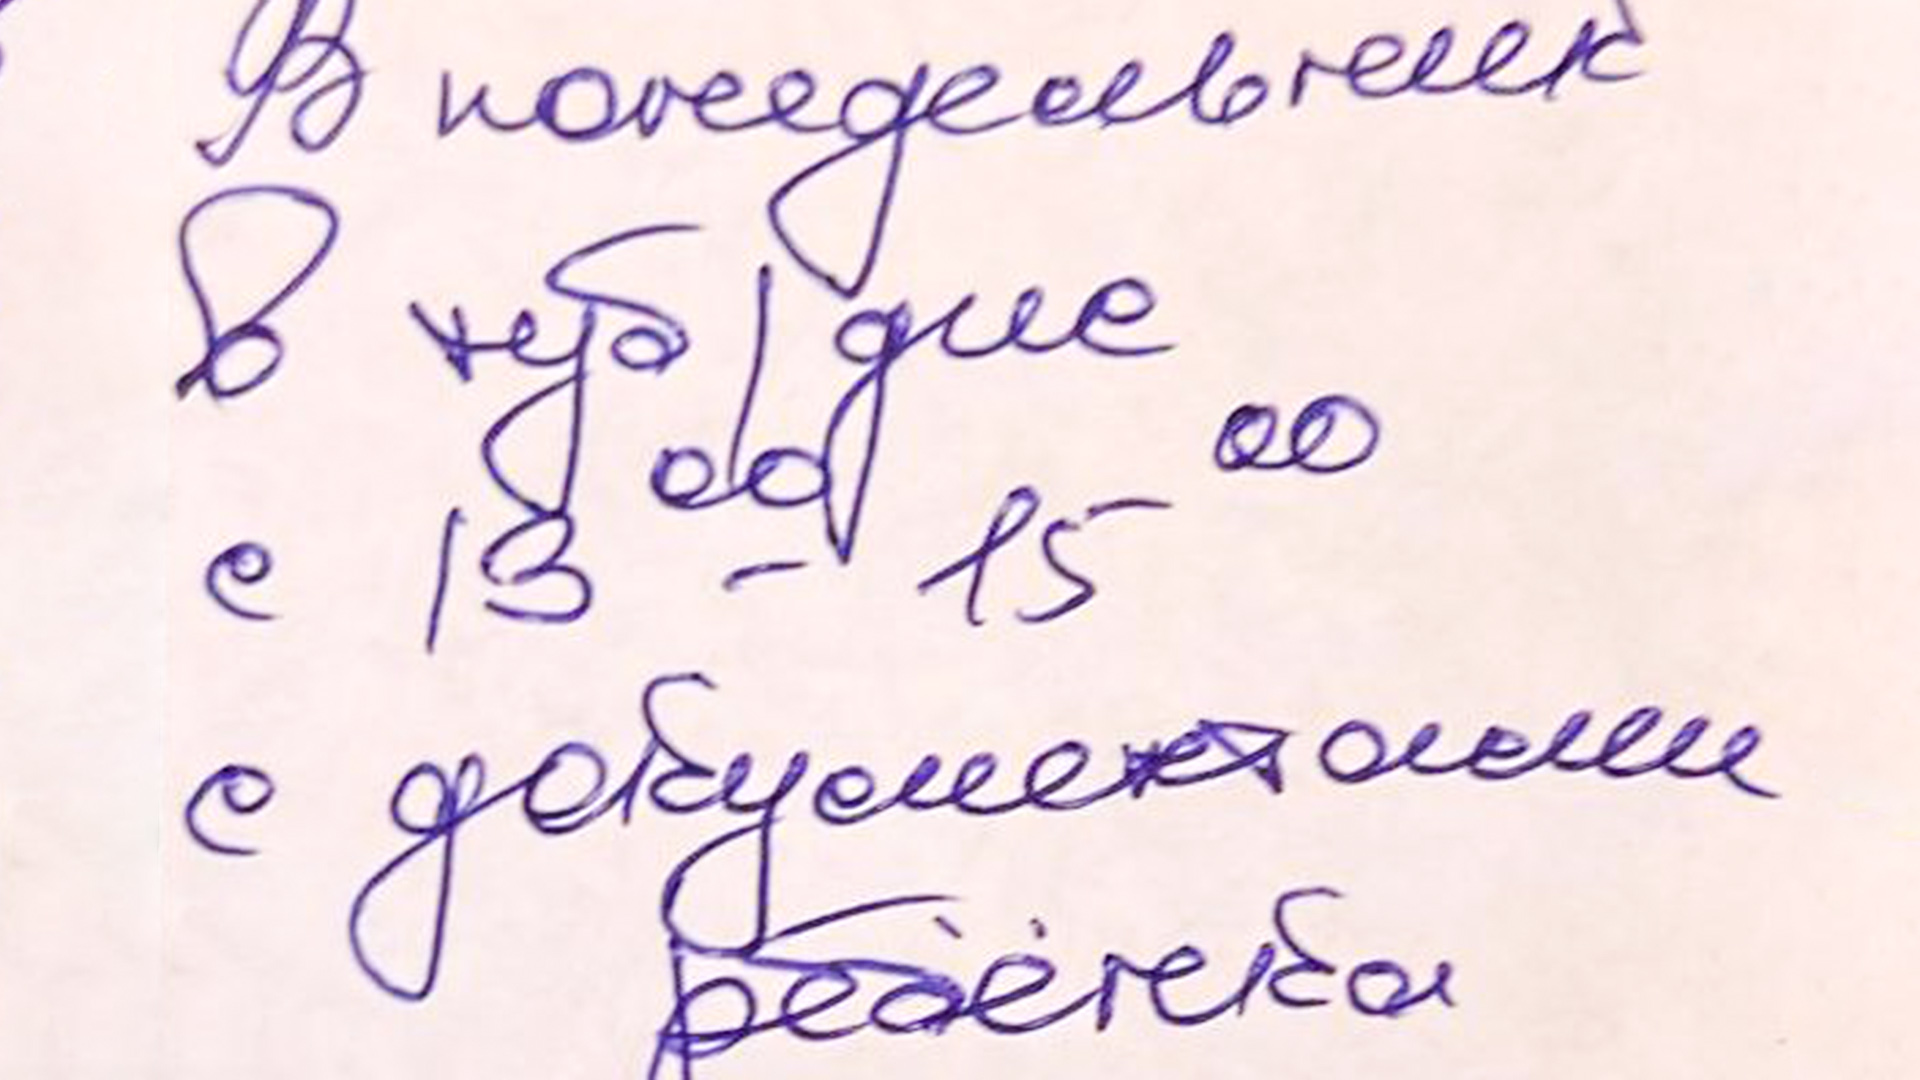 В понедельник
в куб/дне
с 13⁰⁰ - 15⁰⁰
с документами
ребёнка